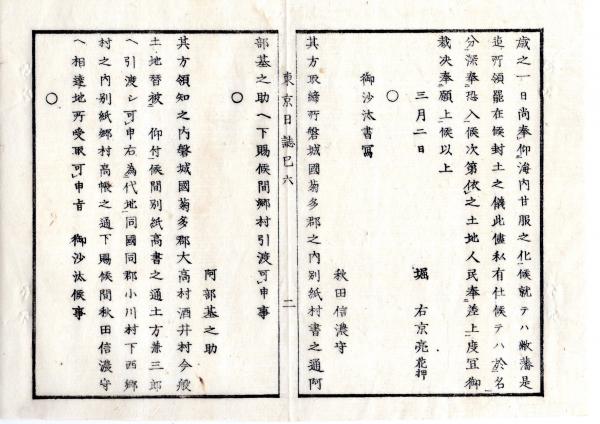 歳之一日尚奉仰海内甘服之化候就テハ敝藩是
迄所領罷在候封土之儀此儘私有仕候テハ於名
分深奉恐入候次第依之土地人民奉差上度冝御
裁决奉願上候以上
三月二日
堀右京亮花押
○
御沙汰書冩
秋田信濃守
其方取締所磐城國菊多郡之内別紙村書之通阿
東京日誌巳六
二
部基之助へ下賜候間郷村引渡可申事
○
阿部基之助
其方領知之内磐城國菊多郡大高村酒井村今般
土地替被 仰付候間別紙高書之通土方兼三郎
へ引渡シ可申右為代地同國同郡小川村下西郷
村之内別紙郷村高帳之通下賜候間秋田信濃守
へ相達地所受取可申旨 御沙汰候事
○